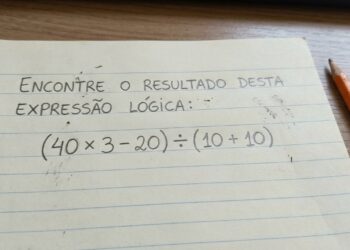 ENCONTRE O RESULTADO DESTA
EXPRESSÃO LÓGICA:
(40 × 3 - 20) ÷ (10 + 10)